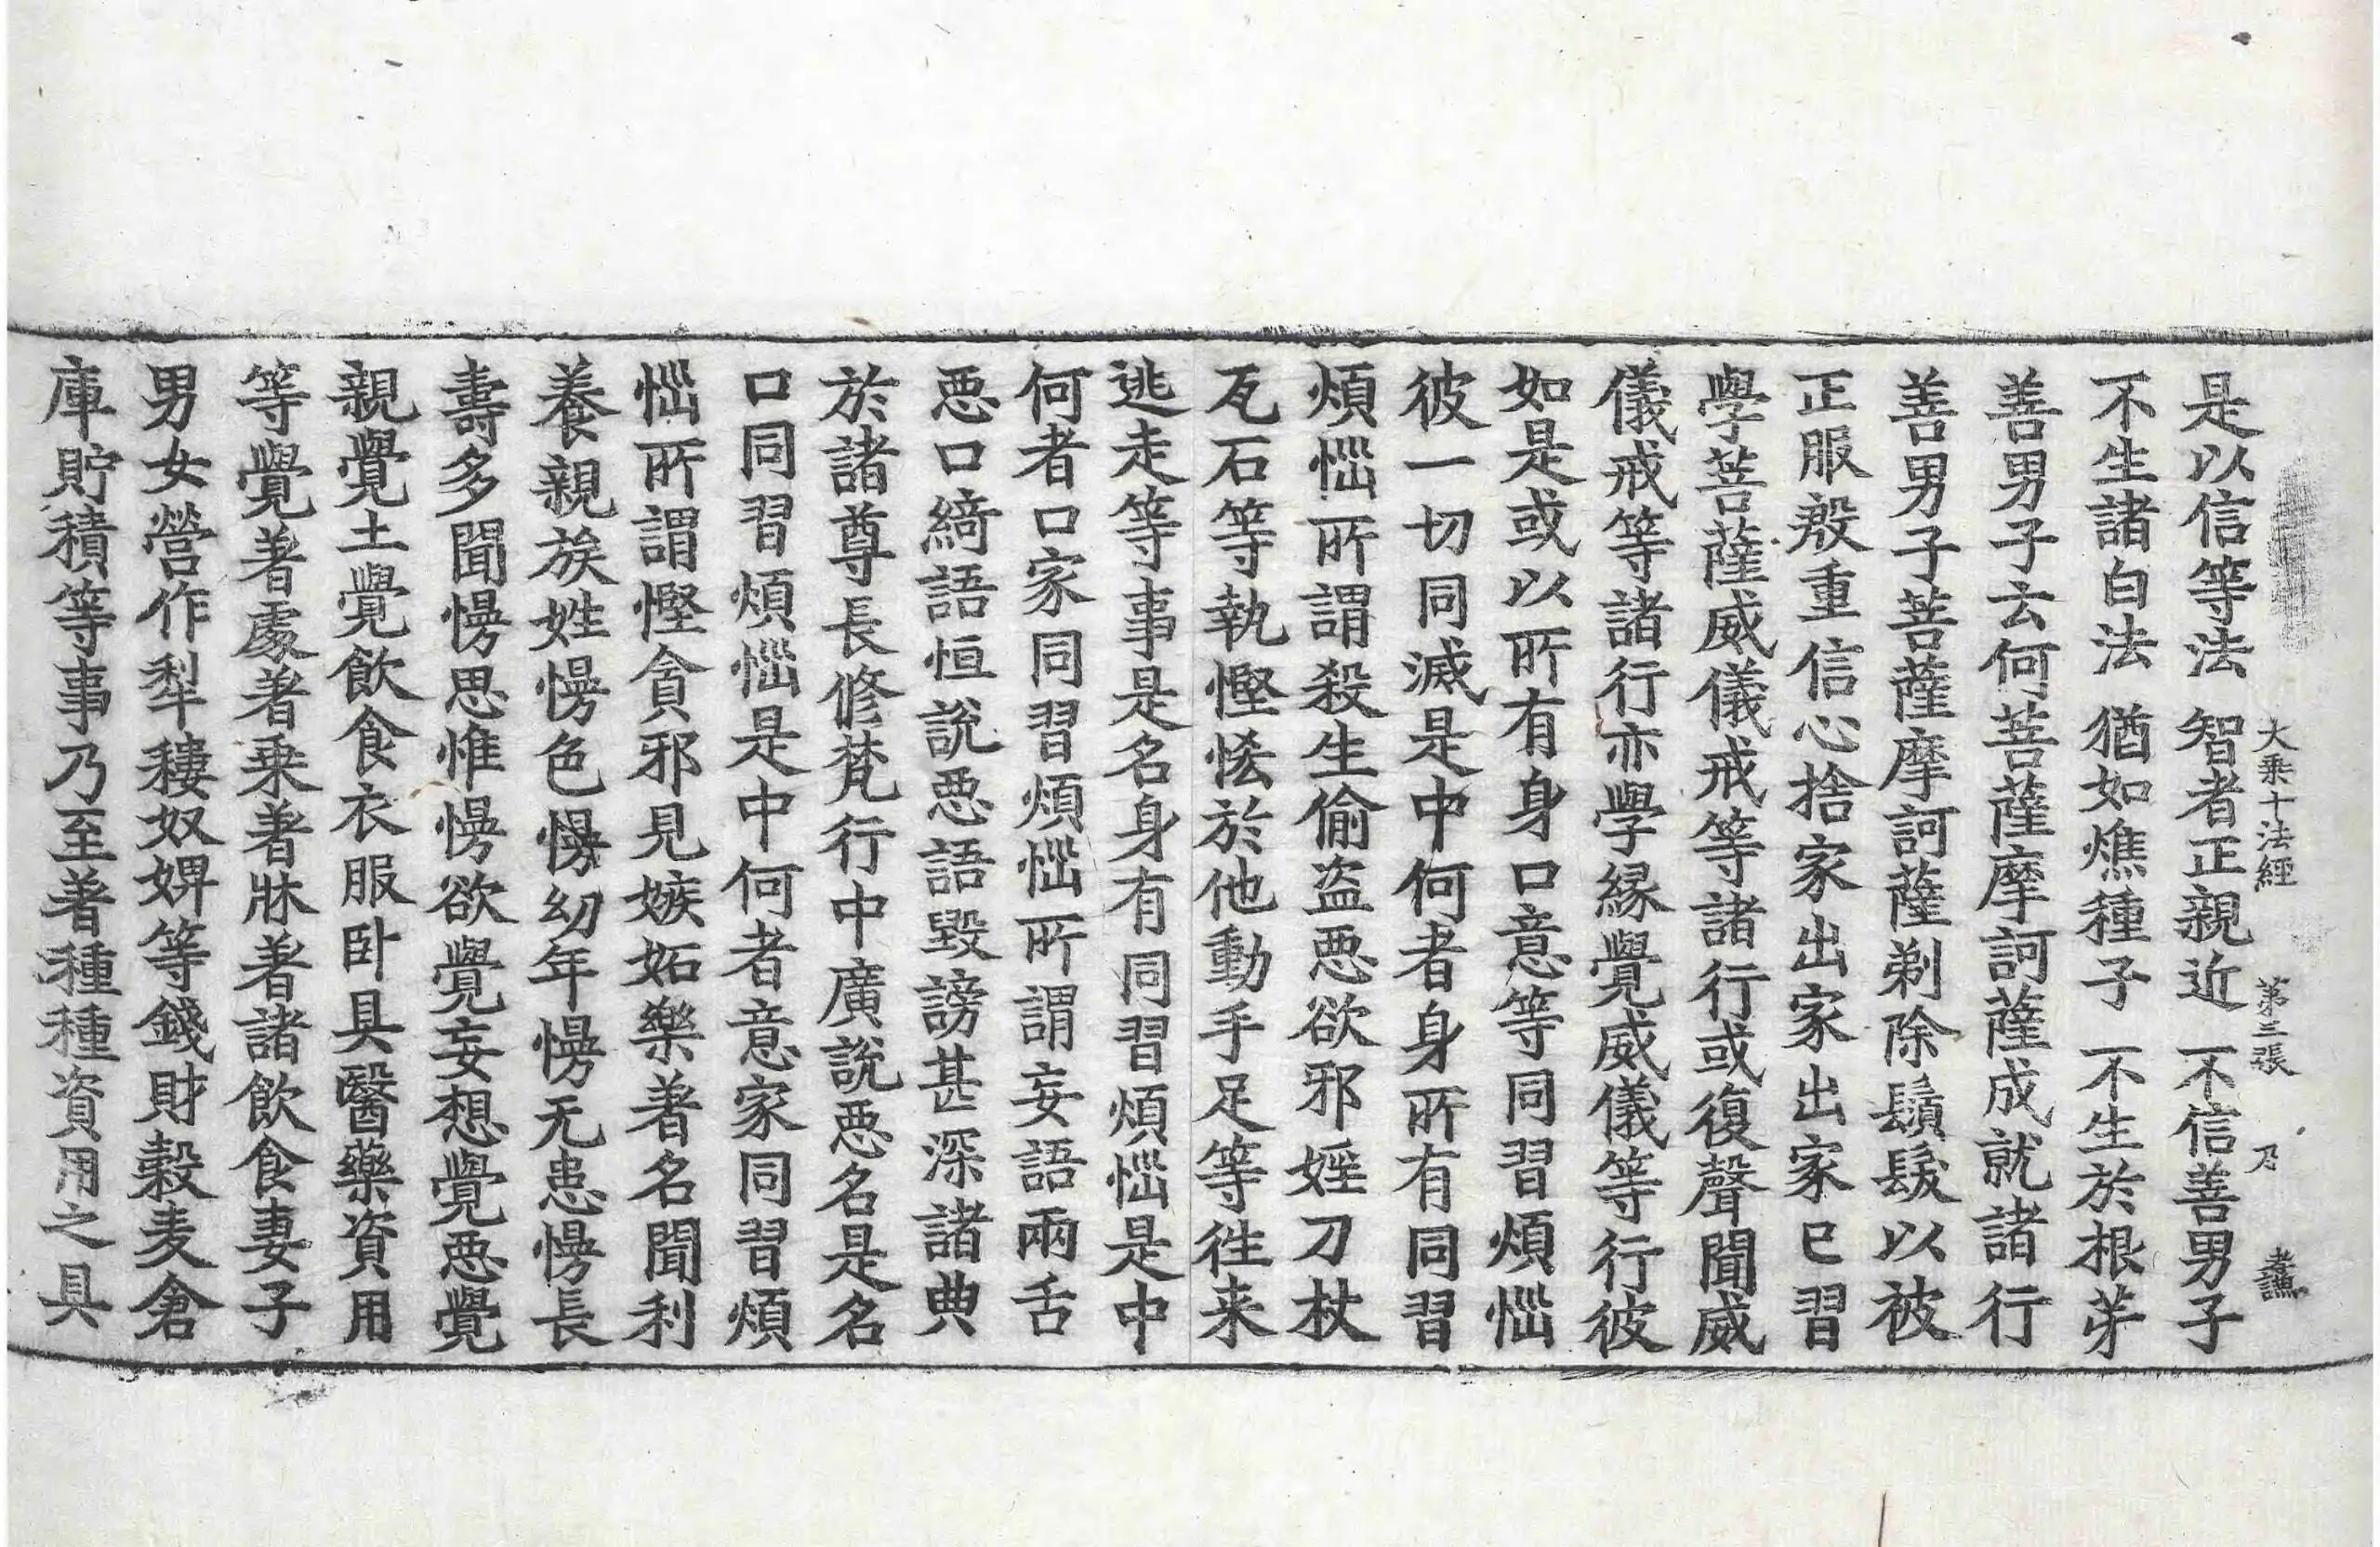 大乘十法經 第三張 乃 孝謙
是以信等法 智者正親近 不信善男子
不生諸白法 猶如燋種子 不生於根芽
善男子云何菩薩摩訶薩成就諸行
善男子菩薩摩訶薩剃除鬚髮以被
正服殷重信心捨家出家出家已習
學菩薩威儀戒等諸行或復聲聞威
儀戒等諸行亦學緣覺威儀等行彼
如是或以所有身口意等同習煩惱
彼一切同滅是中何者身所有同習
煩惱所謂殺生偷盜惡欲邪婬刀杖
瓦石等執慳悋於他動手足等往来
逃走等事是名身有同習煩惱是中
何者口家同習煩惱所謂妄語兩舌
惡口綺語恒說惡語毀謗甚深諸典
於諸尊長修梵行中廣說惡名是名
口同習煩惱是中何者意家同習煩
惱所謂慳貪邪見嫉妬樂著名聞利
養親族姓慢色慢幼年慢无患慢長
壽多聞慢思惟慢欲覺妄想覺惡覺
親覺土覺飲食衣服卧具醫藥資用
等覺著處著乗著牀著諸飲食妻子
男女營作犁耬奴婢等錢財穀麦倉
庫貯積等事乃至著種種資用之具